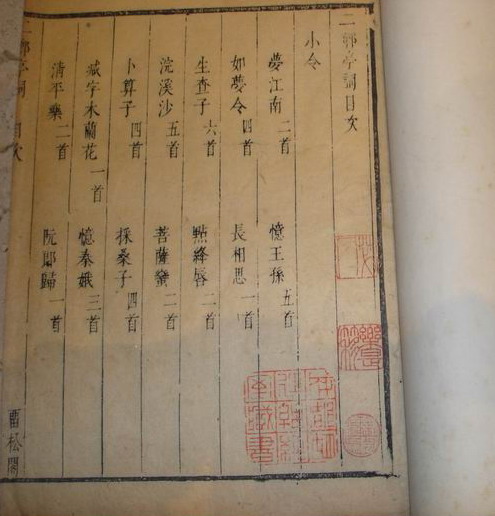 二鄉亭詞目次
小令
夢江南 二首 憶王孫 五首
如夢令 四首 長相思 一首
生查子 六首 點絳唇 二首
浣溪沙 五首 菩薩蠻 二首
卜算子 四首 採桑子 四首
減字木蘭花 一首 憶秦娥 三首
清平樂 二首 阮郎歸 一首
二鄉亭詞 目次
留松閣